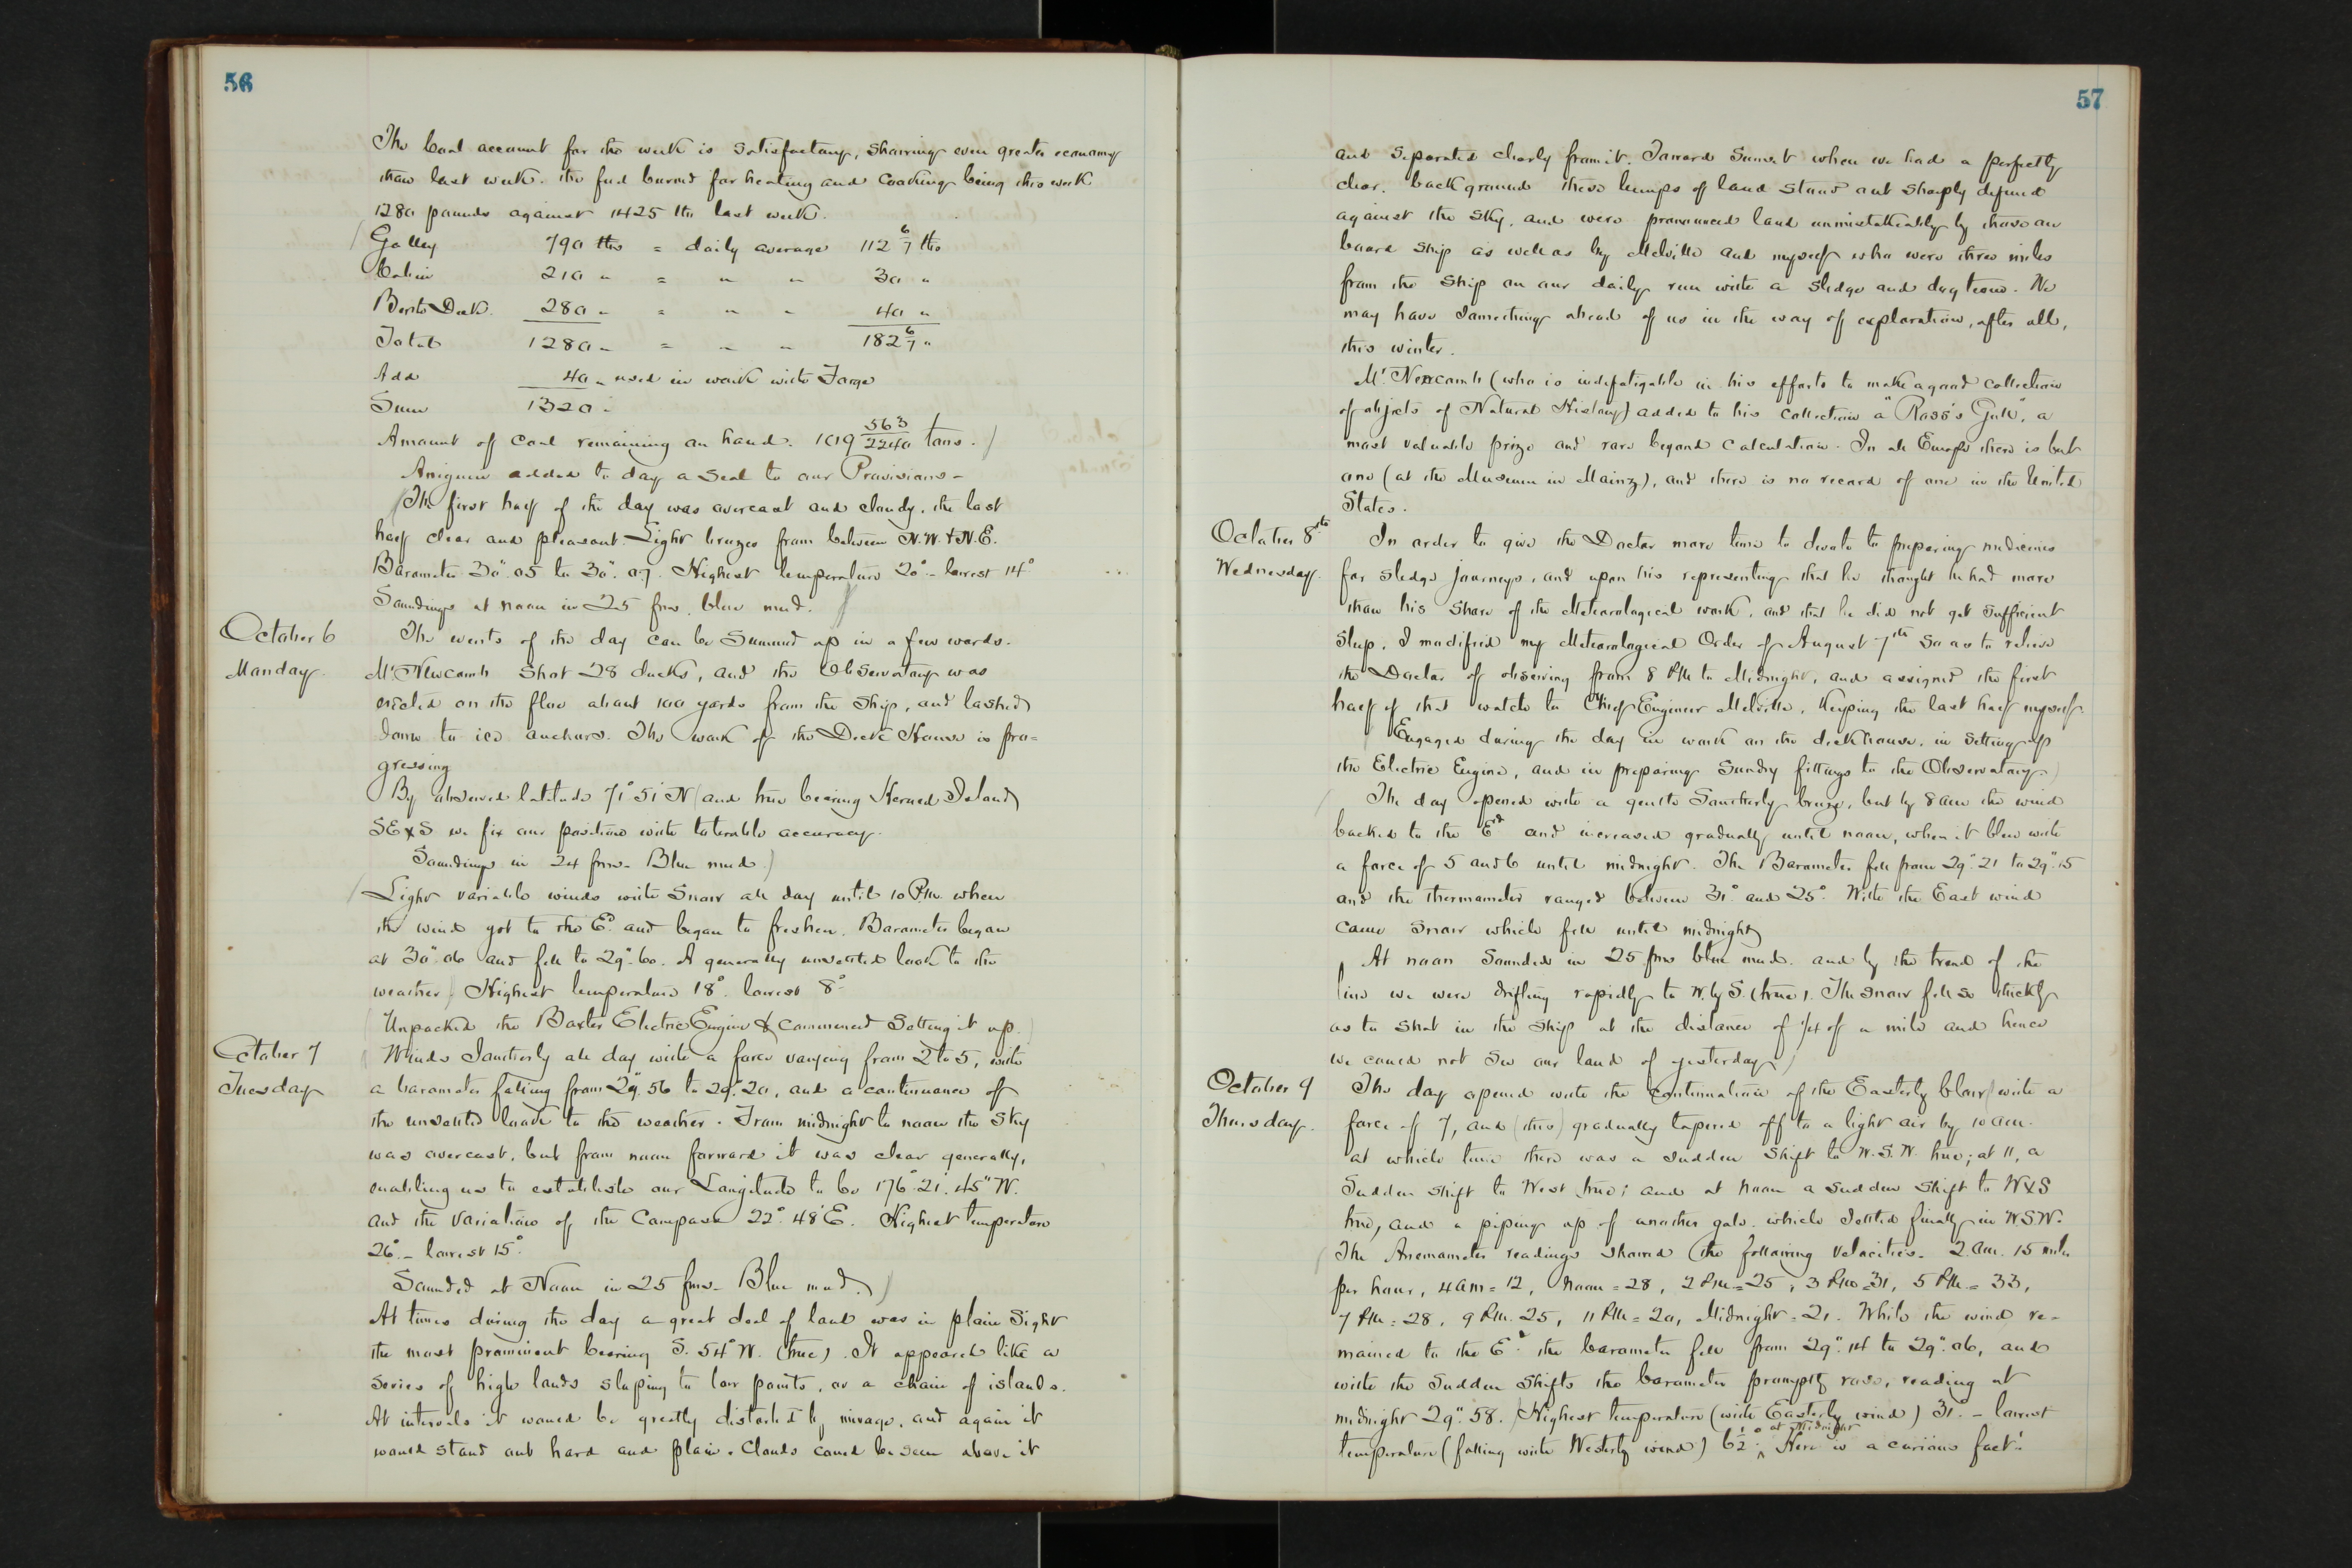 56
The Coal account for the week is satisfactory, showing even greater economy
than last week. The fuel burned for heating and cooking being this week
1280 pounds against 1425 lbs last week.
Galley 790 lbs = daily average 112 6/7 lbs
Cabin 210 " = " " 30 "
Berth Deck. 280 " = " " 40 "
Total 1280 " = " " 182 6/7 "
Add 40 " used in work with Forge
Sum 1320 "
Amount of coal remaining on hand. 1019 563/2240 tons.)
Aniguin added to day a seal to our Provisions -
(The first half of the day was overcast and cloudy, the last
half clear and pleasant. Light breezes from between N.W. & N.E.
Barometer 30". 05 to 30". 07. Highest temperature 20° - lowest 14°
Soundings at noon in 25 fms. blue mud.
October 6
Monday.
The events of the day can be summed up in a few words.
Mr. Newcomb shot 28 ducks, and the Observatory was
erected on the floe about 100 yards from the ship, and lashed
down to ice anchors. The work of the Deck House is pro=
gressing
By observed latitude 71° 51' N (and true bearing Herald Island)
SE x S we fix our position with tolerable accuracy.
Soundings in 24 fms. Blue mud.)
(Light variable winds with snow all day until 10 P.M. when
the wind got to the Ed. and began to freshen. Barometer began
at 30". 06 and fell to 29". 60. A generally unsettled look to the
weather.) Highest temperature 18°. lowest 8°.
(Unpacked the Baxter Electric Engine & commenced setting it up.)
October 7
Tuesday
(Winds Southerly all day with a force varying from 2 to 5, with
a barometer falling from 29". 56 to 29". 20, and a continuance of
the unsettled look to the weather. From midnight to noon the sky
was overcast, but from noon forward it was clear generally,
enabling us to establish our Longitude to be 176°. 21'. 45" W.
and the variation of the Compass 22°. 48' E. Highest temperature
26°. - lowest 15°.
Sounded at Noon in 25 fms. Blue mud.)
At times during the day a great deal of land was in plain sight
the most prominent bearing S. 54° W. (true). It appeared like a
series of high lands sloping to low points, or a chain of islands.
At intervals it would be greatly distorted by mirage, and again it
would stand out hard and plain. Clouds could be seen above it
57
and separated clearly from it. Toward Sunset when we had a perfectly
clear background these lumps of land stood out sharply defined
against the sky, and were pronounced land unmistakeably by those on
board ship as well as by Melville and myself who were three miles
from the ship on our daily run with a sledge and dog team. We
may have something ahead of us in the way of exploration, after all,
this winter.
Mr. Newcomb (who is indefatigable in his efforts to make a good collection
of objects of Natural History) added to his collection a "Ross's Gull", a
most valuable prize and rare beyond calculation. In all Europe there is but
one (at the Museum in Mainz), and there is no record of one in the United
States.
October 8th
Wednesday.
In order to give the Doctor more time to devote to preparing medicines
for sledge journeys, and upon his representing that he thought he had more
than his share of the Meteorological work, and that he did not get sufficient
sleep, I modified my Meteorological Order of August 7th so as to relieve
the Doctor of observing from 8 PM to Midnight, and assigned the first
half of that watch to Chief Engineer Melville, keeping the last half myself.
(Engaged during the day in work on the deckhouse, in setting up
the Electric Engine, and in preparing sundry fittings to the Observatory.)
(The day opened with a gentle Southerly breeze, but by 8 am the wind
backed to the Ed. and increased gradually until noon, when it blew with
a force of 5 and 6 until midnight. The Barometer fell from 29". 21 to 29". 15
and the thermometer ranged between 31° and 25°. With the East wind
came snow which fell until midnight)
At noon Sounded in 25 fms blue mud. and by the trend of the
line we were drifting rapidly to W. by S. (true). The snow fell so thickly
as to shut in the ship at the distance of 1/4 of a mile and hence
we could not see our land of yesterday)
October 9
Thursday.
The day opened with the continuation of the Easterly blow) with a
force of 7, and (this) gradually tapered off to a light air by 10 am.
at which time there was a sudden shift to W.S.W. true; at 11, a
Sudden shift to West true; and at noon a sudden shift to W x S
true, and a piping up of another gale. which settled finally in W.S.W.
(The Anemometer readings showed the following velocities. 2. am. 15 miles
per hour, 4 am = 12, Noon = 28, 2 PM = 25, 3 PM = 31, 5 PM = 33,
7 PM = 28, 9 PM. 25, 11 PM = 20, Midnight = 21. While the wind re-
mained to the Ed. the barometer fell from 29". 14 to 29". 06, and
with the sudden shifts the barometer promptly rose, reading at
midnight 29". 58.) Highest temperature (with Easterly wind) 31°. - lowest
temperature (falling with Westerly wind) 6 1/2°. ^ at Midnight Here is a curious fact!